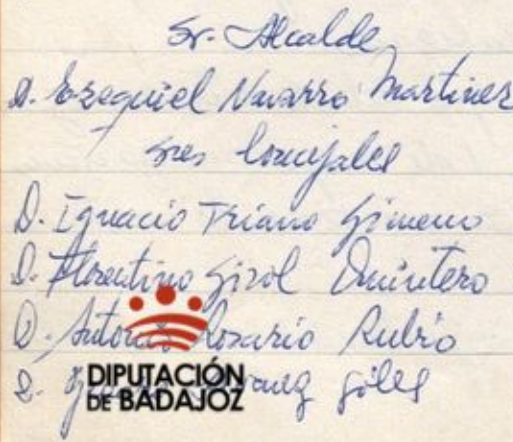 Sr. Alcalde
D. Ezequiel Navarro Martinez
Sres Concejales
D. Ignacio Triano Gimeno
D. Florentino Girol Quintero
D. Antonio Rosario Rubio
D.
DIPUTACIÓN
DE BADAJOZ